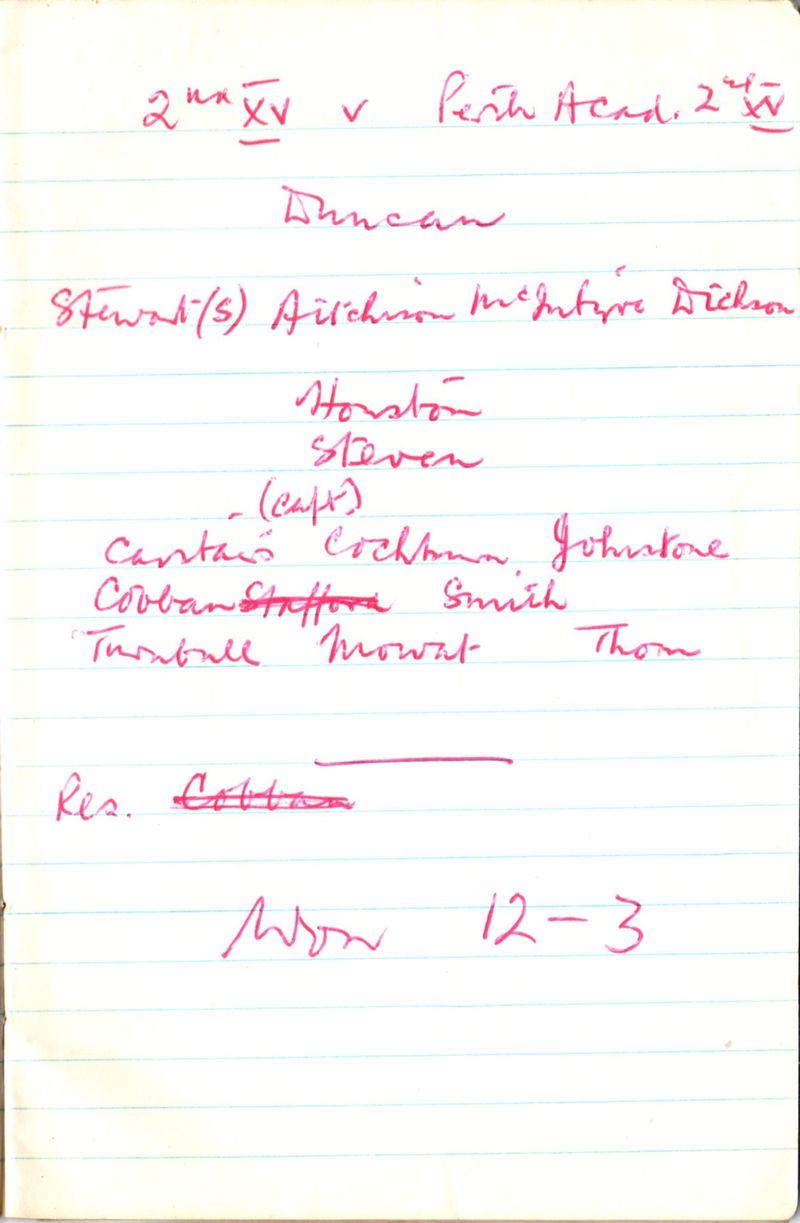 2nd XV v Perth Acad. 2nd XV
Duncan
Stewart (S) Aitchison McIntyre Dickson
Houston
Steven
(Capt.)
Carstairs Cockburn Johnstone
Cobban Stafford Smith
Turnbull Mowat Thom
Res. Cobban
Won 12-3